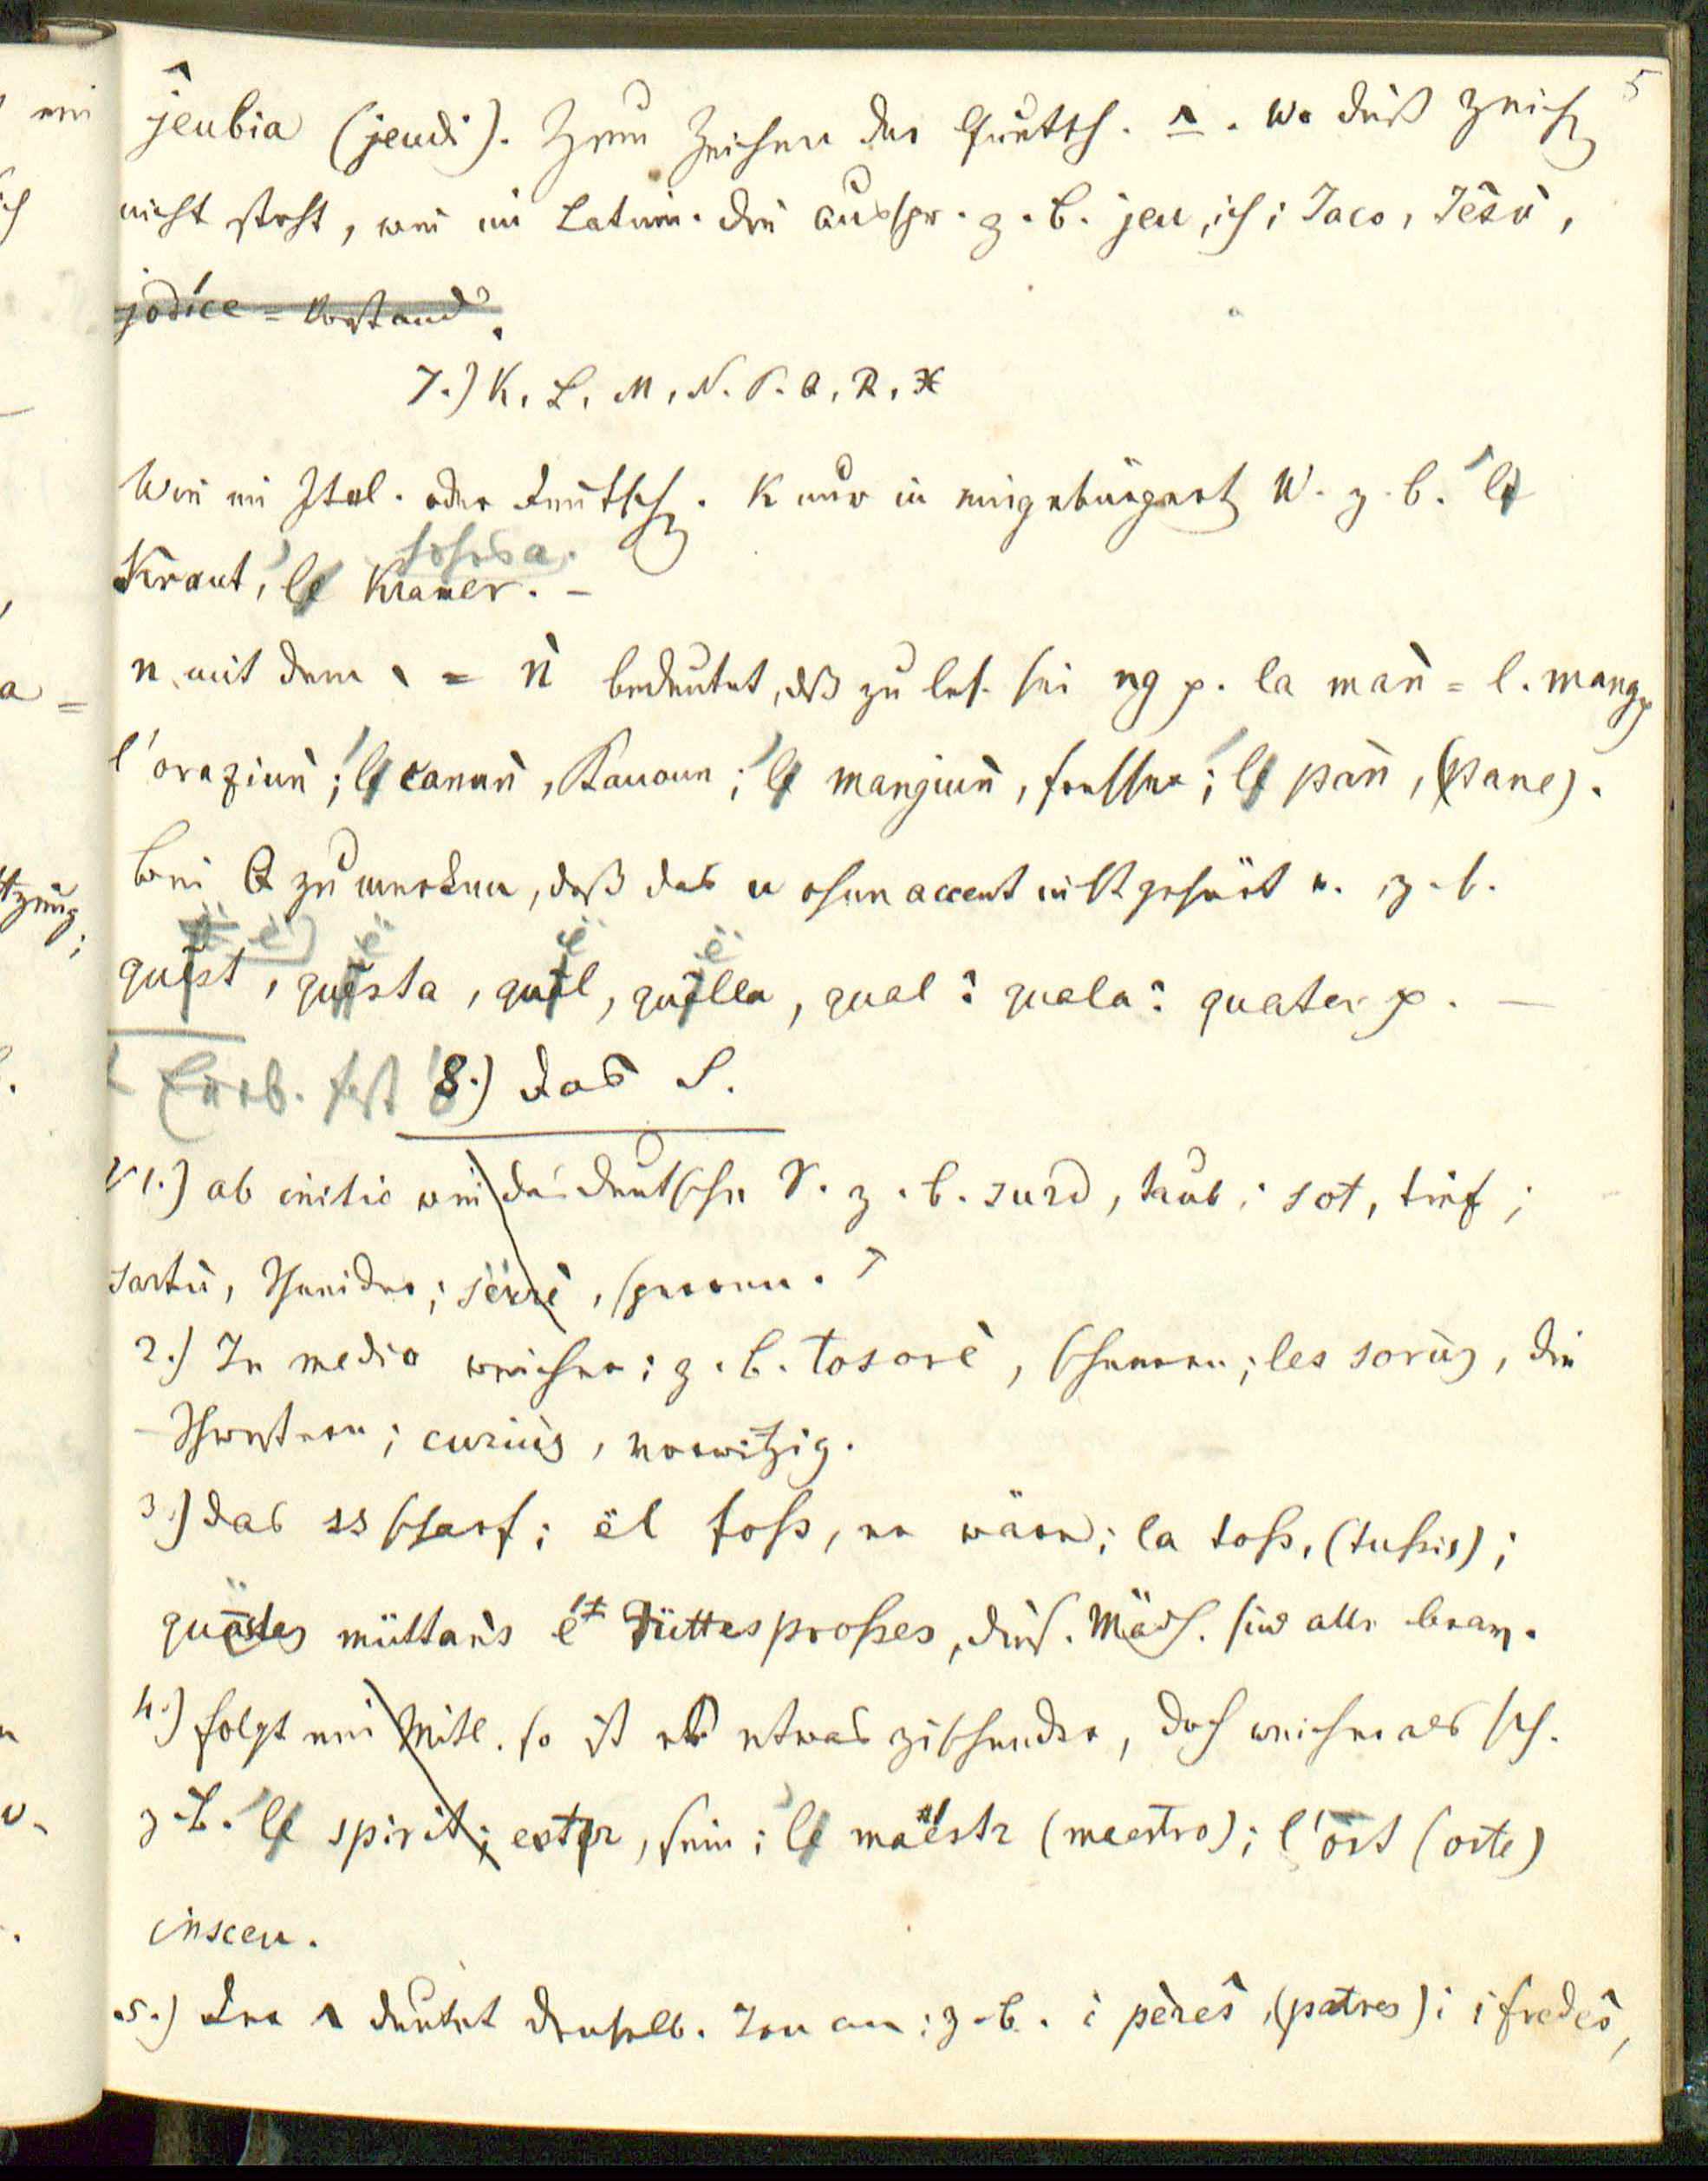 5
ĵeubia (jeudi). Zum Zeichen der Quetsch. ^. Wo dieß Zeich
nicht steht, wie im Latein. die Ausspr. z. B. jeu, ich; Jaco, Jesù,
jodice = Vorstand.
7.) K, L, M, N. P. Q, R, X
Wie im Ital. oder Deutsch. K nur in eingebürgert W. z. B. 'l
Kraut, 'l Kramer. –
n mit dem \ = ǹ bedeutet, dß zu les. sei ng p. la maǹ = l. mang p
l'oraziuǹ; 'l canuǹ, Kanoun; 'l mangiuǹ, Fresser; 'l paǹ, (pane).
Bei Q zu merken, daß das u ohne accent nicht gehört w. z. b.
quëst, quësta, quël, quëlla, qual? quala? quater p. –
8.) Das S.
1.) ab initio wie das deutsche S. z. B. surd, taub; sot, tief;
sartù, Schneider; serré, sperren.
2.) In medio weicher; z. B. tosorè, scheeren; les sorùs, die
Schwestern; curiùs, vorwitzig.
3.) das ss scharf; ël foss, er wäre; la toss, (tussis);
quëstes müttans é düttes prosses, dies. Mädch. sind alle brav.
4.) folgt ein Mitl. so ist es etwas zischender, doch weicher als sch.
z. B. 'l spirit; ester, sein; 'l maëstr (maestro); l'ost (oste)
insceu.
5.) Der ^ deutet denselb. Ton an; z. B. i pères̑, (patres); i fredes̑,